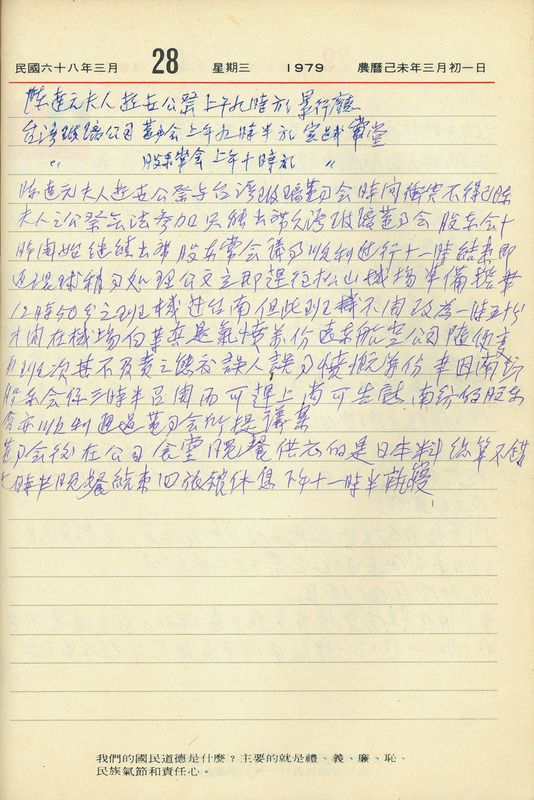 民國六十八年三月 28 星期三 1979 農曆己未年三月初一日
陳逢元夫人赴安公祭上午九時於景行廳
台灣玻璃公司董事會上午九時半於宝成會堂
〃 股東常會上午十時於 〃
陳逢元夫人公祭与台湾玻璃董事會時间衝突不得已陳
夫人之公祭無法參加只能出席台湾玻璃董事會 股東會十
時開始继続出席股東常會議事順利進行十一時結束即
返環球稍事处理公文立即趕往松山機場準備搭乘
12時50分之班機赴台南但此班機不開改為一時五十分
才開在機場白等真是氣憤萬份遠東航空公司隨便變
更班次甚不負責之態度誤人誤事憤慨萬份幸因南紡
股東会係三時半召開而可趕上尚可告慰 南紡的股東
會亦順利通過董事會所提議案
董事会後在公司食堂晚餐供应的是日本料総算不錯
七時半晚餐結束回旅館休息下午十一時半就寢
我們的國民道德是什麼？主要的就是禮、義、廉、恥、
民族氣節和責任心。